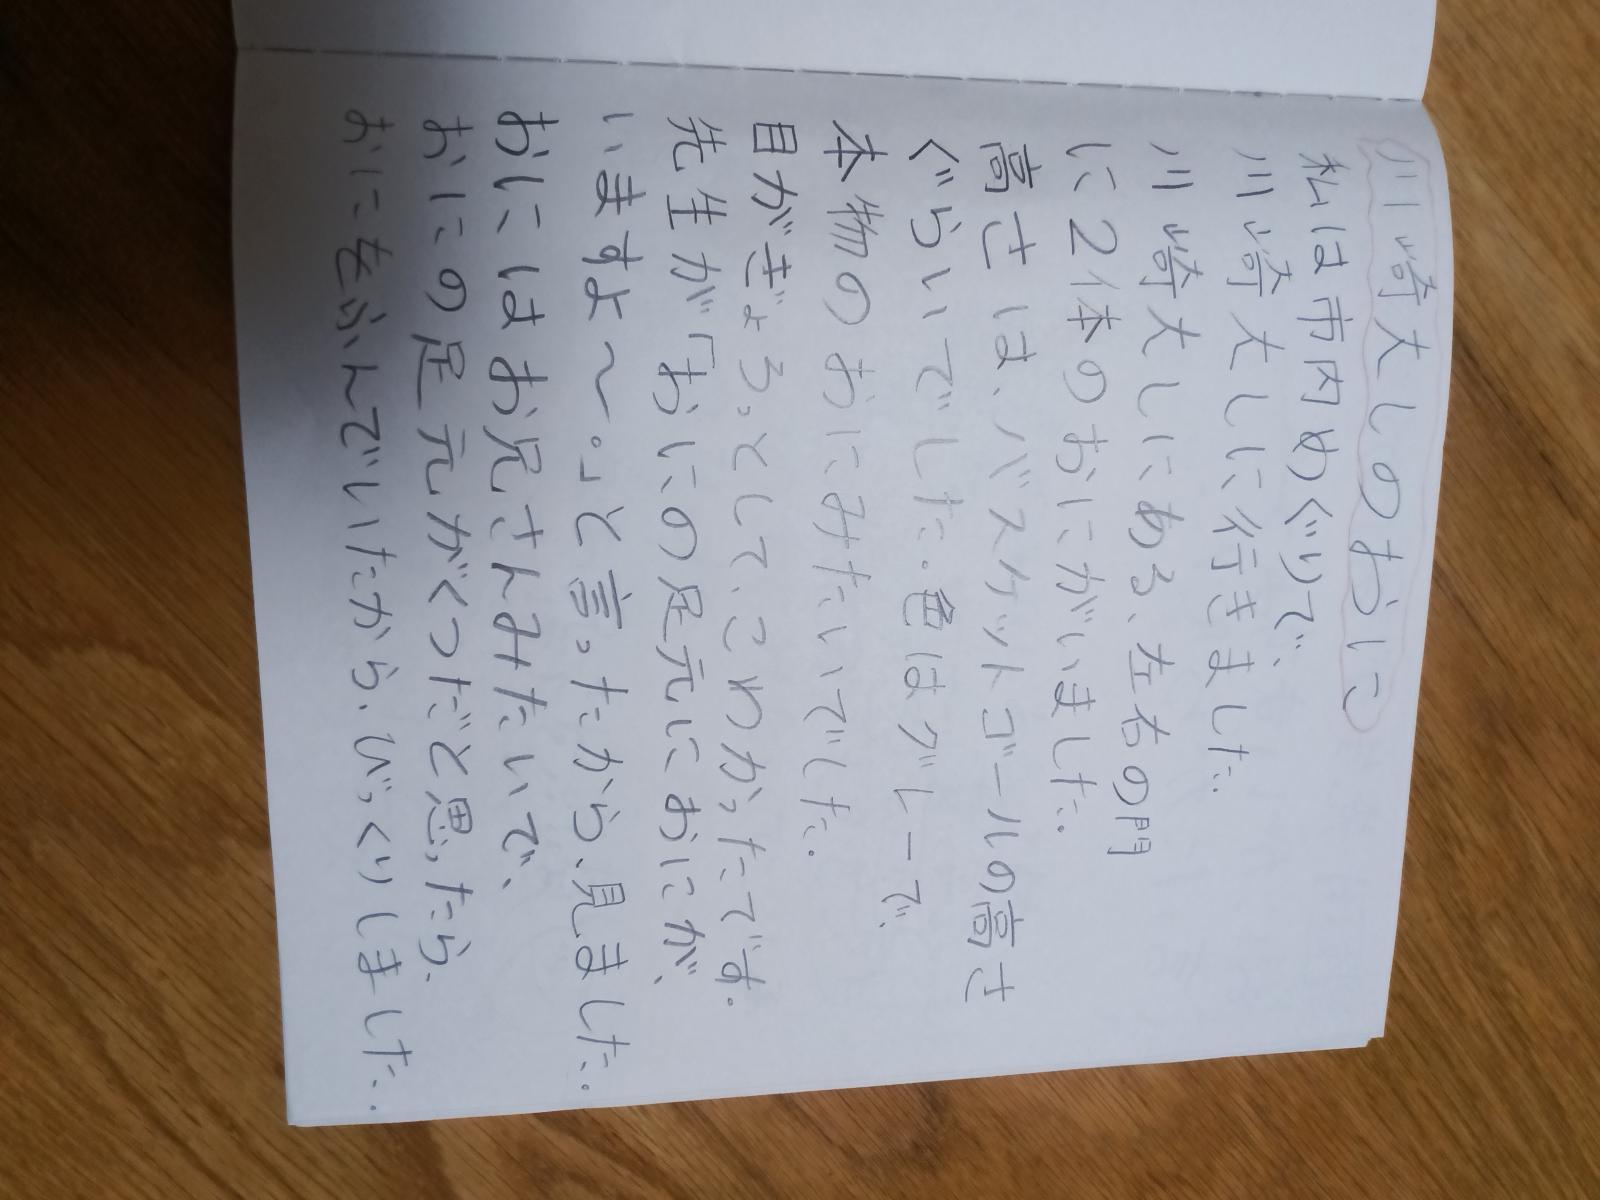 川崎大しのおに
私は市内めぐりで、
川崎大しに行きました。
川崎大しにある、左右の門
に2体のおにがいました。
高さは、バスケットゴールの高さ
ぐらいでした。色はグレーで、
本物のおにみたいでした。
目がぎょろっとして、こわかったです。
先生が「おにの足元におにが、
いますよ〜。」と言ったから、見ました。
おにはお兄さんみたいで、
おにの足元がくつだと思ったら、
おにをふんでいたから、びっくりしました。